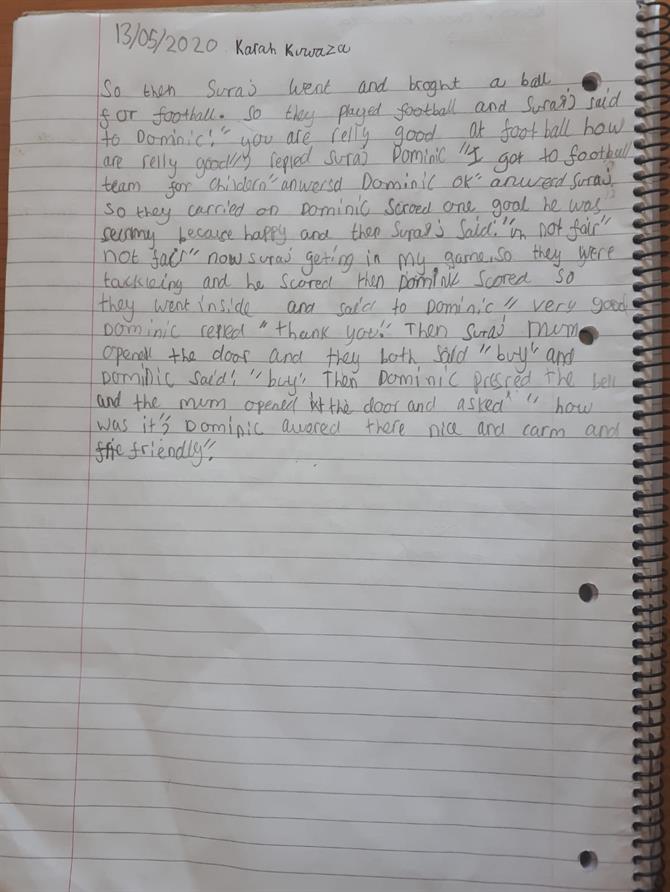 13/05/2020 Karah Kuwaza
So then Suraj went and broght a ball
for football. So they played football and Suraj's said
to Dominic! "you are relly good at football how
are relly good"? repled Suraj Dominic "I got to football
team for childorn" anwersd Dominic ok" anwerd suraj
so they carried on Dominic scroed one goal he was
because happy and then Suraj's Said! "im not fair"
not fair" now suraj geting in my game. So they were
tackleing and he scored then Dominic Scored so
they went inside and said to Dominic " very good
Dominic repled "thank you". Then Suraj mum
opened the door and they both said "buy" and
Dominic said! "buy". Then Dominic pressed the bell
and the mum opened the door and asked " how
was it"? Dominic awored there nice and carm and
friendly".